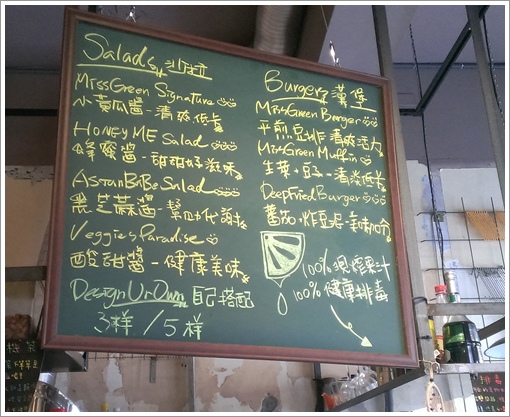 Salads 沙拉
MissGreen Signature
小黃瓜醬-清爽低卡
HONEY ME Salad
蜂蜜醬-甜甜好滋味
AsianBaBe Salad
黑芝麻醬-幫助代謝
Veggies Paradise
酸甜醬-健康美味
DesignUrOwn 自己搭配
3样 / 5样
Burger 漢堡
MissGreen Burger
平煎豆排-清爽活力
MissGreen Muffin
生菜、豆子-清淡低卡
DeepFried Burger
蕃茄、炸豆泥-美味
100% 現榨果汁
100% 健康排毒